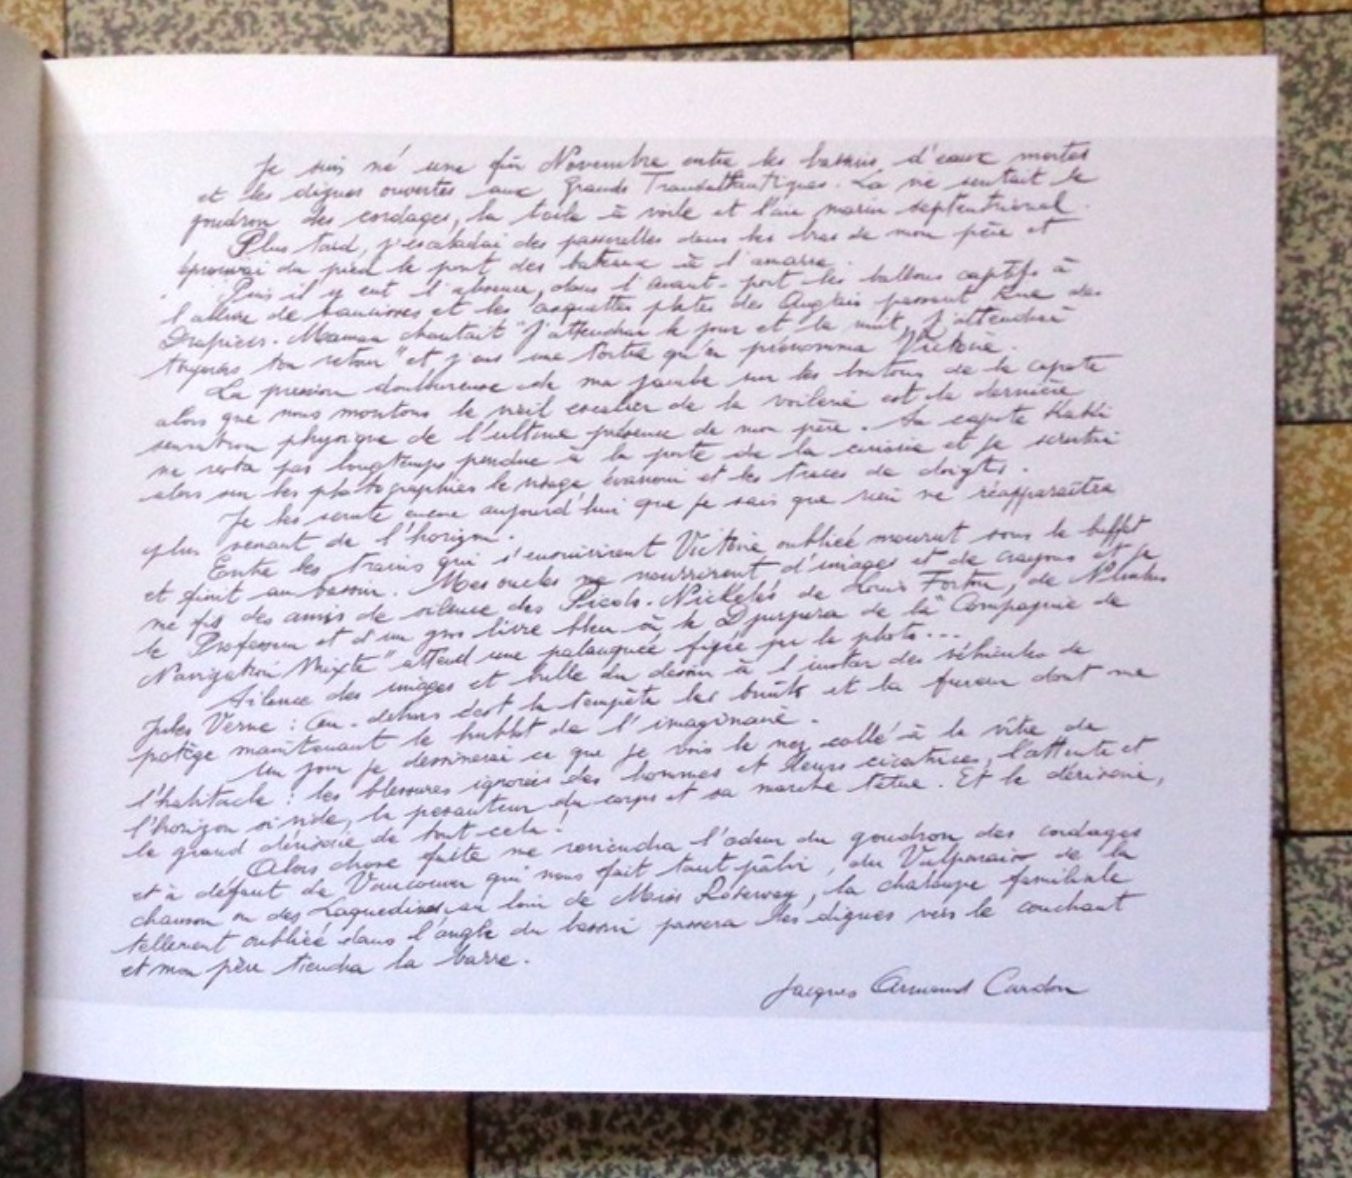 Je suis né une fin Novembre entre les bassins d'eaux mortes
et les digues ouvertes aux Grands Transatlantiques. La vie sentait le
goudron des cordages, la toile à voile et l'air marin septentrional.
Plus tard, j'escaladai des passerelles dans les bras de mon père et
éprouvai du pied le pont des bateaux à l'amarre.
Puis il y eut l'absence, dans l'avant-port les ballons captifs à
l'allure de saucisses et les casquettes plates des Anglais passant Rue des
Drapiers. Maman chantait "J'attendrai le jour et la nuit, j'attendrai
toujours ton retour" et j'eus une tortue qu'on prénomma Victoire.
La pression douloureuse de ma jambe sur les boutons de la capote
alors que nous montons le vieil escalier de la voilerie est la dernière
sensation physique de l'ultime présence de mon père. Sa capote kakie
ne resta pas longtemps pendue à la porte de la cuisine et je scrutai
alors sur les photographies le visage évanoui et les traces de doigts.
Je les scrute encore aujourd'hui que je sais que rien ne réapparaîtra
plus venant de l'horizon.
Entre les trains qui s'ensuivirent Victoire oubliée mourut sous le buffet
et finit au bassin. Mes oncles me nourrirent d'images et de crayons et je
me fis des amis de silence des Pieds-Nickelés de Louis Forton, de Nimbus
le Professeur et d'un gros livre bleu où le Djurjura de la "Compagnie de
Navigation Mixte" attend une palanquée figée par la photo...
Silence des images et bulle du dessin à l'instar des véhicules de
Jules Verne : au-dehors c'est la tempête les bruits et la fureur dont me
protège maintenant le hublot de l'imaginaire.
Un jour je dessinerai ce que je vois le nez collé à la vitre de
l'habitacle : les blessures ignorées des hommes et leurs cicatrices, l'attente et
l'horizon si vide, la pesanteur du corps et sa marche têtue. Et la dérisoire,
la grand dérisoire de tout cela !
Alors chose faite me reviendra l'odeur du goudron des cordages
et à défaut de Vancouver qui nous fait tant pâlir, du Valparaiso de la
chanson ou des Laquedives au loin de Miss Roseway, la chaloupe familiale
tellement oubliée dans l'angle du bassin passera les digues vers le couchant
et mon père tiendra la barre.
Jacques Armand Cardon